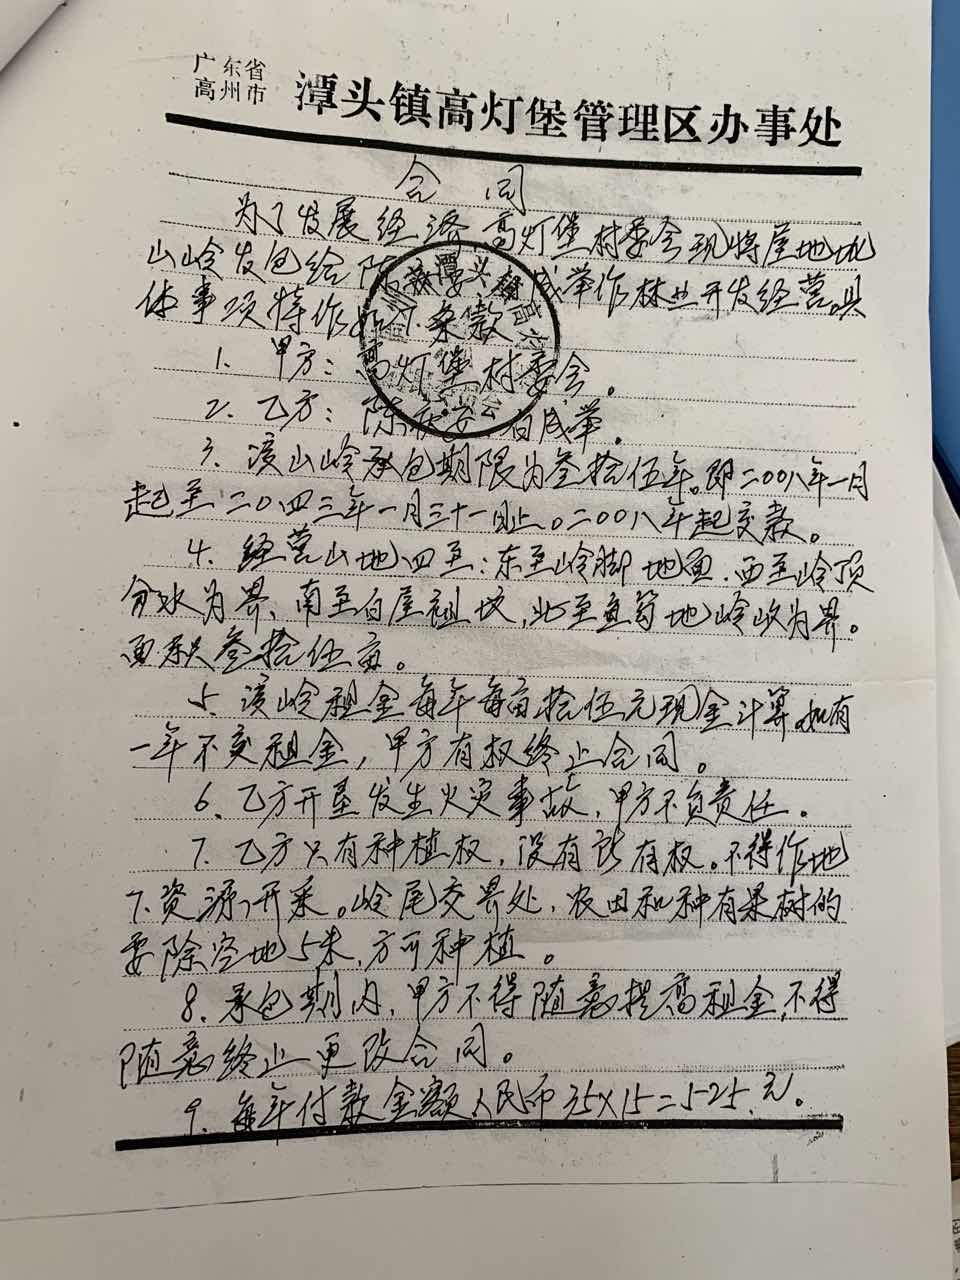 广东省
高州市
潭头镇高灯堡管理区办事处
合同
为了发展经济,高灯堡村委会现将屋地坑
山岭发包给陈 成举作林业开发经营。具
体事项特作如下条款
1、甲方:高灯堡村委会。
2、乙方:陈 成举。
3、该山岭承包期限为叁拾伍年。即二00八年一月
起至二0四三年一月三十一日止。二00八年起交款。
4、经营山地四至:东至岭脚地 、西至岭顶
分水为界、南至白屋祖坟,北至 地岭 为界。
面积叁拾伍亩。
5、该岭租金每年每亩拾伍元现金计算。如有
一年不交租金,甲方有权终止合同。
6、乙方开垦发生火灾事故,甲方不负责任。
7、乙方只有种植权,没有所有权。不得作地
下资源开采。岭尾交界处,农田和种有果树的
要除空地5米,方可种植。
8、承包期内,甲方不得随意提高租金,不得
随意终止更改合同。
9、每年付款金额人民币35×15=525.元。